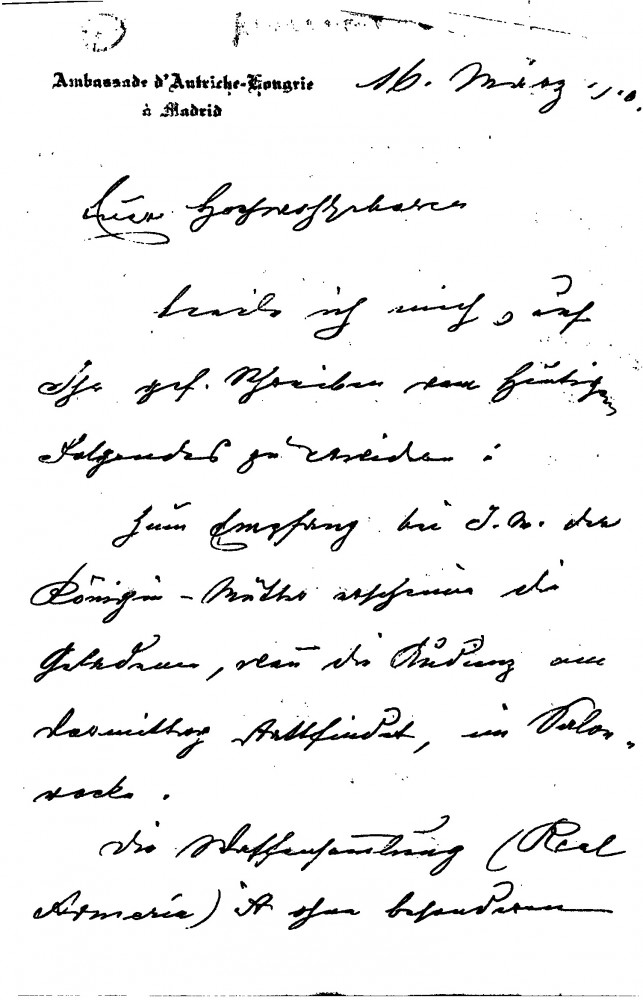 Ambassade d'Autriche-Hongrie
à Madrid
16. März
Euer Hochwohlgeboren
beeile ich mich, auf
Ihr gef. Schreiben vom heutigen
Folgendes zu erwidern:
Zum Empfang bei I. M. der
Königin-Mutter erscheinen die
Geladenen, wenn die Audienz am
Vormittag stattfindet, im Salon-
rocke.
Die Waffensammlung (Real
Armeria) ist ohne besonderen